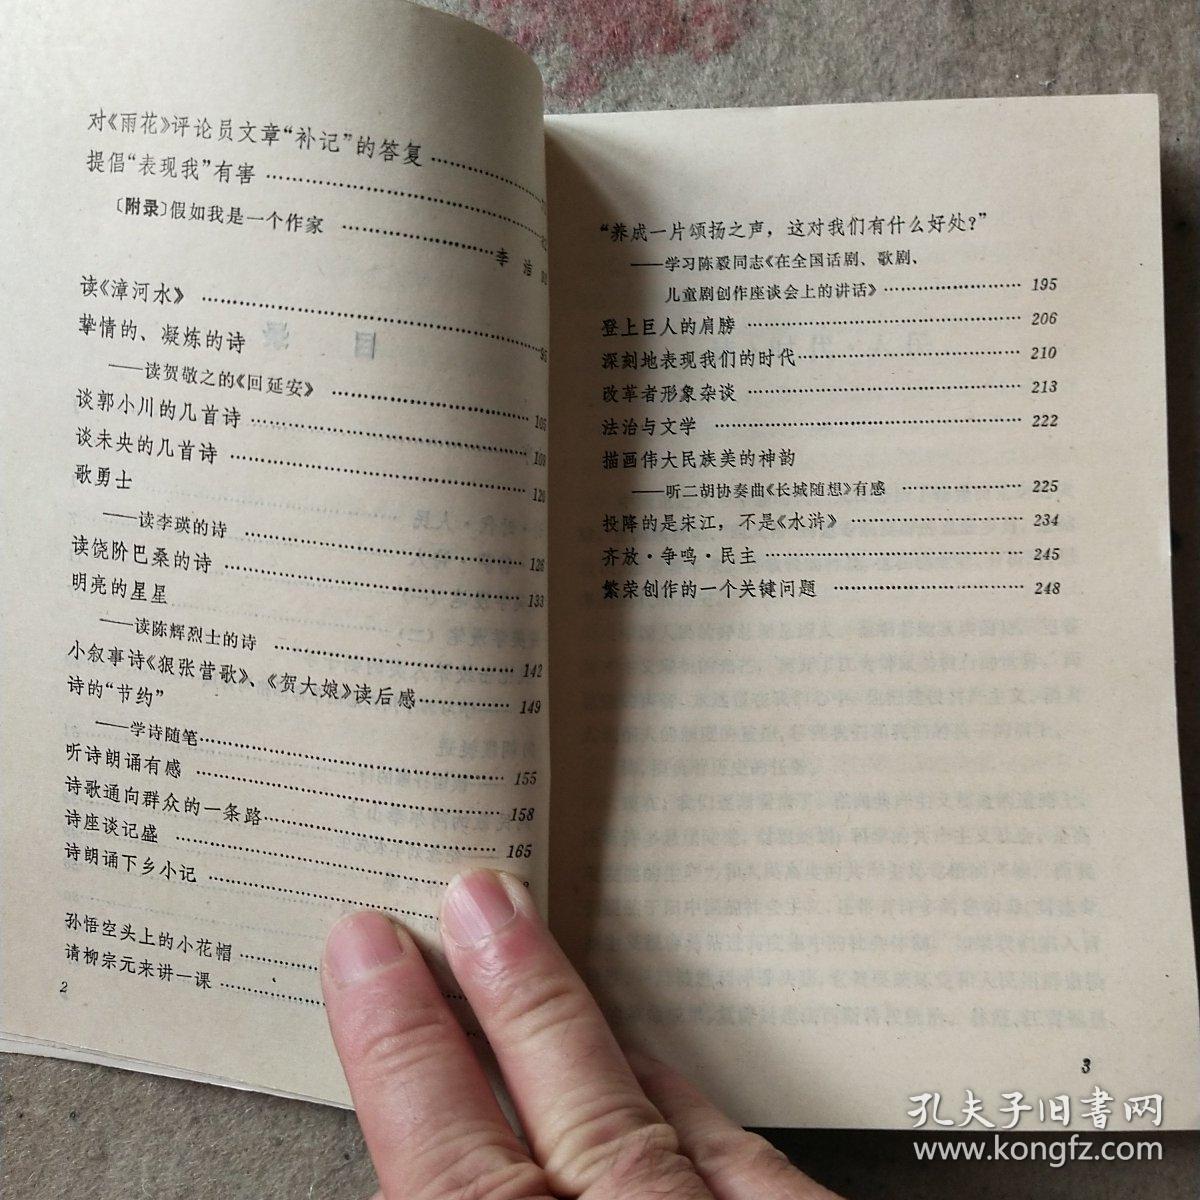 对《雨花》评论员文章“补记”的答复
提倡“表现我”有害
〔附录〕假如我是一个作家
李
读《漳河水》
挚情的、凝炼的诗 95
——读贺敬之的《回延安》
谈郭小川的几首诗 105
谈未央的几首诗 109
歌勇士 120
——读李瑛的诗
读饶阶巴桑的诗 126
明亮的星星 133
——读陈辉烈士的诗
小叙事诗《狠张营歌》、《贺大娘》读后感 142
诗的“节约” 149
——学诗随笔
听诗朗诵有感 155
诗歌通向群众的一条路 158
诗座谈记盛 165
诗朗诵下乡小记
孙悟空头上的小花帽
请柳宗元来讲一课
2
“养成一片颂扬之声，这对我们有什么好处？”
——学习陈毅同志《在全国话剧、歌剧、
儿童剧创作座谈会上的讲话》 195
登上巨人的肩膀 206
深刻地表现我们的时代 210
改革者形象杂谈 213
法治与文学 222
描画伟大民族美的神韵
——听二胡协奏曲《长城随想》有感 225
投降的是宋江，不是《水浒》 234
齐放·争鸣·民主 245
繁荣创作的一个关键问题 248
3
孔夫子旧书网
www.kongfz.com